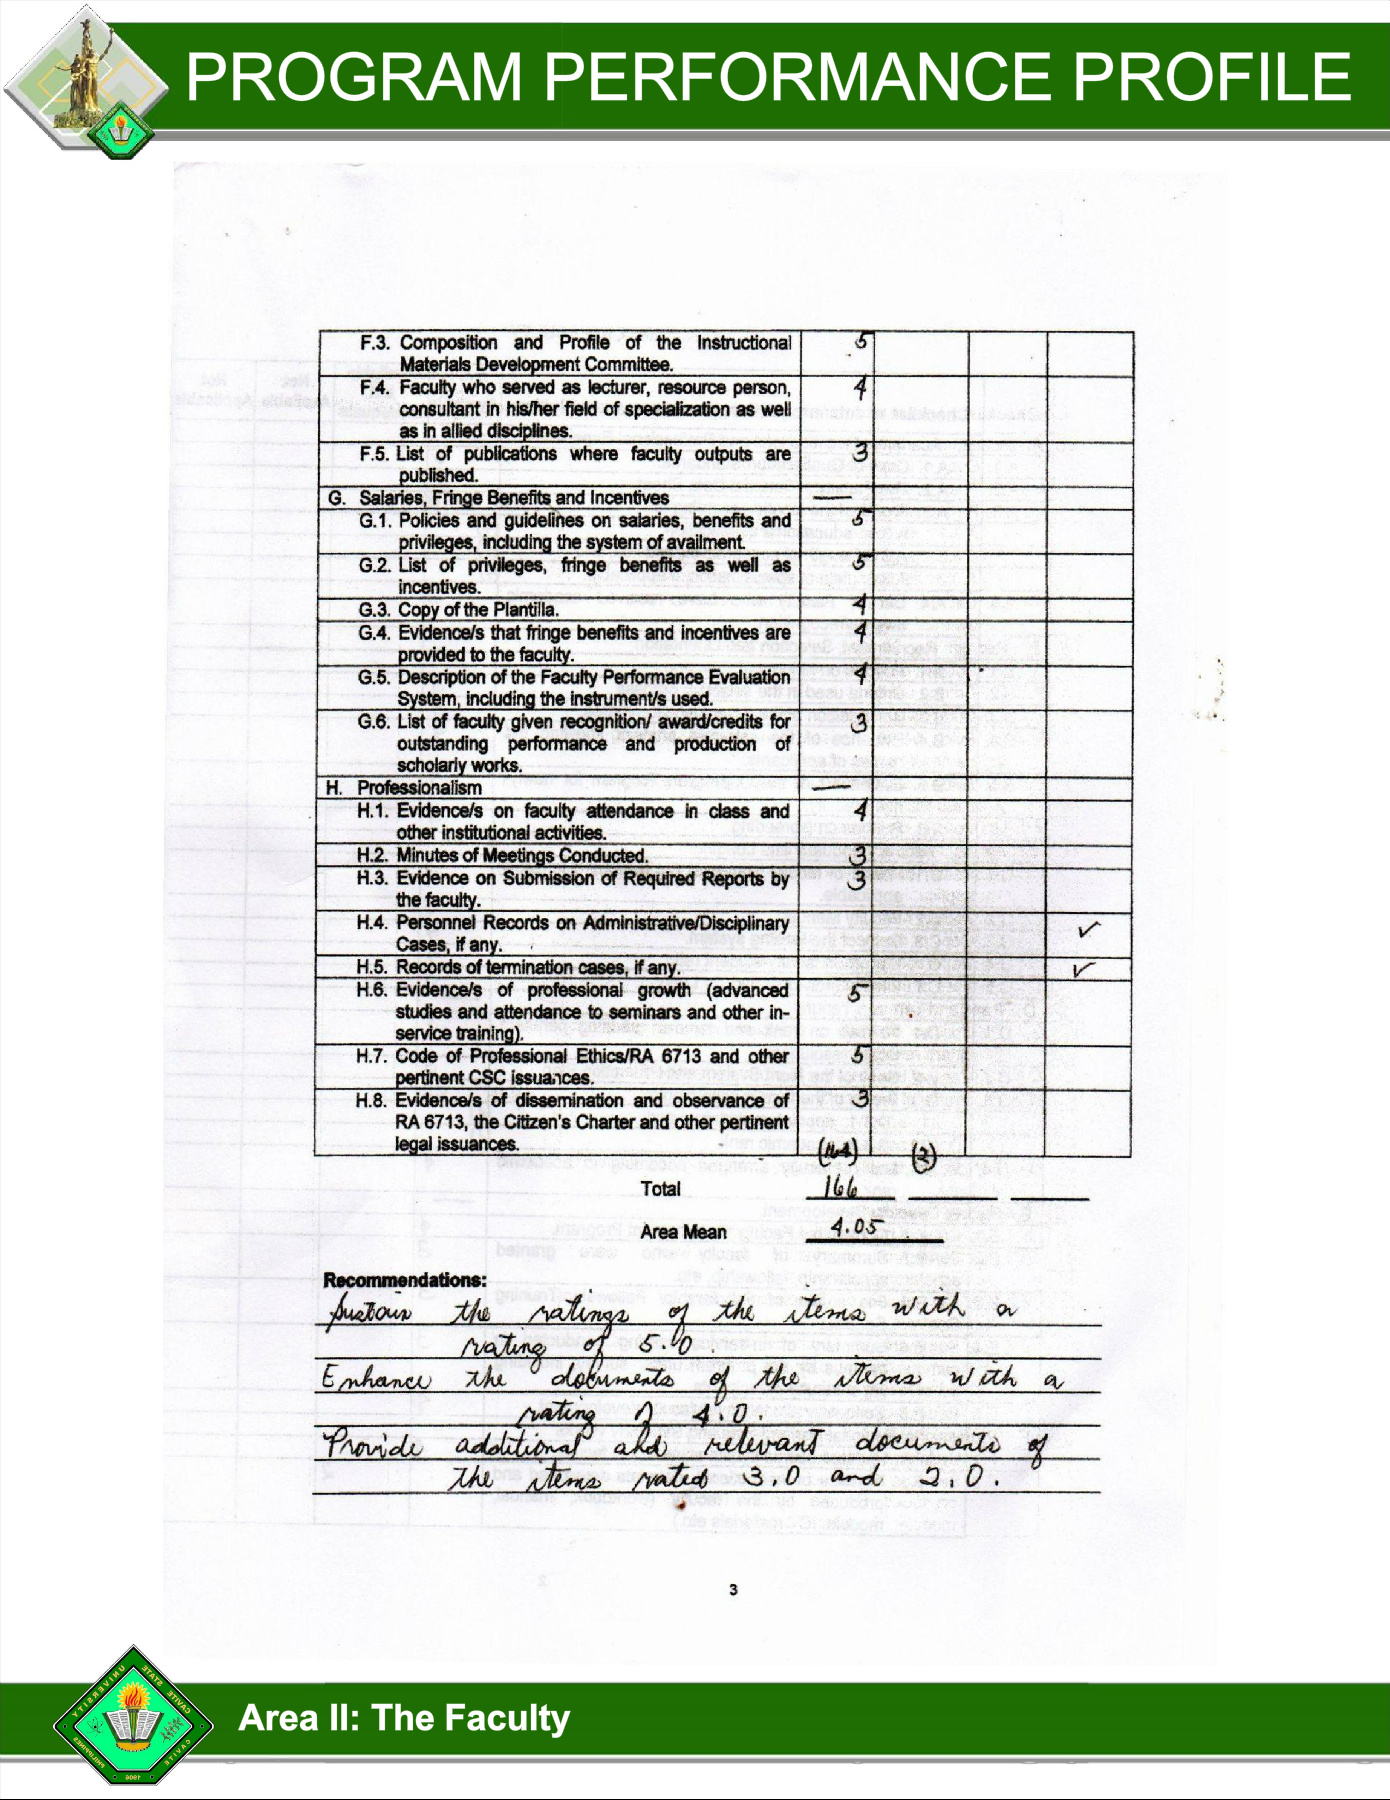 PROGRAM PERFORMANCE PROFILE
F.3. Composition and Profile of the Instructional 5
Materials Development Committee.
F.4. Faculty who served as lecturer, resource person, 4
consultant in his/her field of specialization as well
as in allied disciplines.
F.5. List of publications where faculty outputs are 3
published.
G. Salaries, Fringe Benefits and Incentives —
G.1. Policies and guidelines on salaries, benefits and 5
privileges, including the system of availment.
G.2. List of privileges, fringe benefits as well as 5
incentives.
G.3. Copy of the Plantilla. 4
G.4. Evidence/s that fringe benefits and incentives are 4
provided to the faculty.
G.5. Description of the Faculty Performance Evaluation 4
System, including the instrument/s used.
G.6. List of faculty given recognition/ award/credits for 3
outstanding performance and production of
scholarly works.
H. Professionalism —
H.1. Evidence/s on faculty attendance in class and 4
other institutional activities.
H.2. Minutes of Meetings Conducted. 3
H.3. Evidence on Submission of Required Reports by 3
the faculty.
H.4. Personnel Records on Administrative/Disciplinary ✓
Cases, if any.
H.5. Records of termination cases, if any. ✓
H.6. Evidence/s of professional growth (advanced 5
studies and attendance to seminars and other in-
service training).
H.7. Code of Professional Ethics/RA 6713 and other 5
pertinent CSC issuances.
H.8. Evidence/s of dissemination and observance of 3
RA 6713, the Citizen's Charter and other pertinent
legal issuances.
Total 166
Area Mean 4.05
Recommendations:
Sustain the ratings of the items with a
rating of 5.0.
Enhance the documents of the items with a
rating of 4.0.
Provide additional and relevant documents of
the items rated 3.0 and 2.0.
3
Area II: The Faculty
CAVITE STATE UNIVERSITY
CAVITE PHILIPPINES
1906